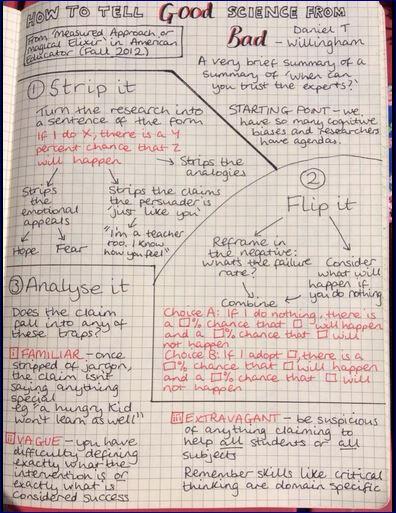 HOW TO TELL Good SCIENCE FROM
Bad
Daniel T
- Willingham
From 'Measured Approach or
Magical Elixir' in American
Educator (Fall 2012)
A very brief summary of a
summary of 'when can
you trust the experts?'
STARTING POINT - we
have so many cognitive
biases and researchers
have agendas.
① Strip it
Turn the research into
a sentence of the form
If I do X, there is a Y
percent chance that Z
will happen
Strips the
analogies
Strips
the
emotional
appeals
Hope Fear
Strips the claims
the persuader is
'just like you'
"I'm a teacher
too. I know
how you feel"
② Flip it
Reframe in
the negative:
whats the failure
rate?
Consider
what will
happen if
you do nothing
Combine
Choice A: If I do nothing, there is
a □% chance that □ will happen
and a □% chance that □ will
not happen
Choice B: If I adopt □, there is a
□% chance that □ will happen
and a □% chance that □ will
not happen
③ Analyse it
Does the claim
fall into any of
these traps?
i FAMILIAR - once
stripped of jargon,
the claim isnt
saying anything
special
eg "a hungry kid
won't learn as well"
ii VAGUE - you have
difficulty defining
exactly what the
intervention is or
exactly what is
considered success
iii EXTRAVAGANT - be suspicious
of anything claiming to
help all students or all
subjects
Remember skills like critical
thinking are domain specific